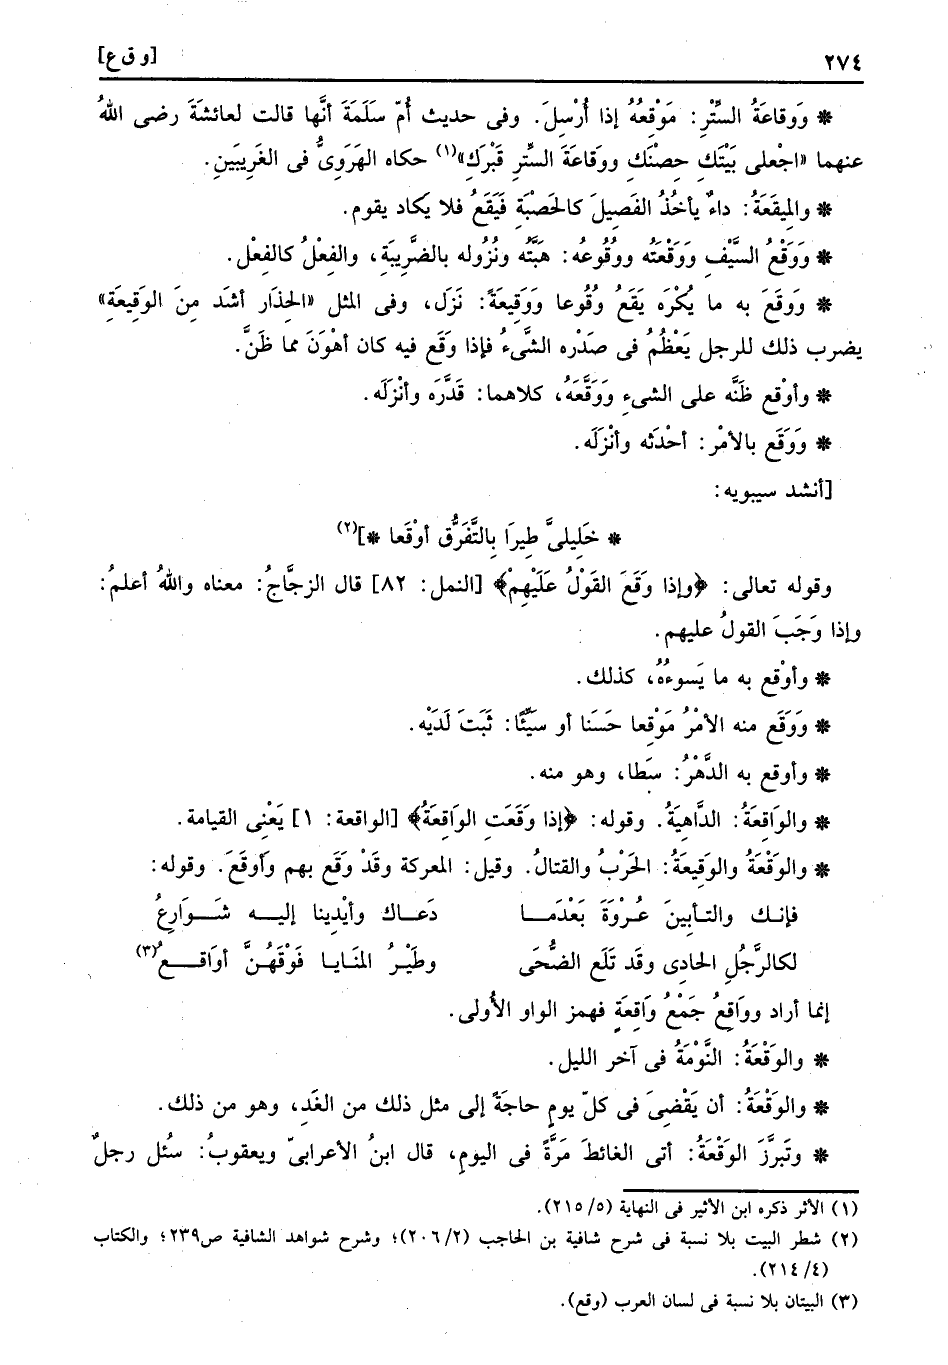 ٢٧٤ [و ق ع]
* وَوِقاعَةُ السِّتْرِ: مَوْقِعُهُ إذا أُرْسِلَ. وفى حديث أُمّ سَلَمَةَ أنَّها قالت لعائشةَ رضى اللهُ
عنهما «اجْعلى بَيْتَكِ حِصْنَكِ ووِقاعَةَ السِّترِ قَبْرَكِ»(١) حكاه الهَرَوِىُّ فى الغَرِيبَينِ.
* والمِيقَعَةُ: داءٌ يأخُذُ الفَصِيلَ كالحَصْبَةِ فيَقَعُ فلا يَكاد يقوم.
* وَوَقْعُ السَّيْفِ وَوَقْعَتُه ووُقُوعُه: هَبَّتُه ونُزُوله بالضَّرِيبَةِ، والفِعْلُ كالفِعْل.
* ووَقَعَ به ما يُكْرَه يَقَعُ وُقُوعا وَوَقِيعَةً: نَزَل، وفى المثل «الحِذَار أشَد مِنَ الوَقِيعَةِ»
يضرب ذلك للرجل يَعْظُمُ فى صَدْره الشَّىءُ فإذا وَقَع فيه كان أهْوَنَ مما ظَنَّ.
* وأوْقع ظَنَّه على الشىءِ وَوَقَّعَهُ، كلاهما: قَدَّرَه وأنْزلَه.
* وَوَقَع بالأمْر: أحْدَثه وأنْزَلَه.
[أنشد سيبويه:
* خَلِيلىَّ طِيرَا بِالتَّفَرُّقِ أوْقَعا *](٢)
وقوله تعالى: ﴿وإذا وَقَعَ القَوْلُ عَلَيْهِمْ﴾ [النمل: ٨٢] قال الزجَّاجُ: معناه واللهُ أعلمُ:
وإذا وَجَبَ القولُ عليهم.
* وأوْقع به ما يَسوءُهُ، كذلك.
* ووَقَع منه الأمْرُ مَوْقِعا حَسَنا أو سَيِّئًا: ثَبَتَ لَدَيْه.
* وأوقع به الدَّهْرُ: سَطا، وهو منه.
* والوَاقِعَةُ: الدَّاهِيَةُ. وقوله: ﴿إذا وقَعَتِ الوَاقِعَةُ﴾ [الواقعة: ١] يَعْنِى القيامة.
* والوَقْعَةُ والوَقِيعَةُ: الحَرْبُ والقتالُ. وقيل: المعركة وقَدْ وقَع بهم وأوقَعَ. وقوله:
فإنـك والتـأبينَ عُـرْوَةَ بَعْدَمَــا دَعـاك وأيْدِينا إليـه شَــوَارِعُ
لكالرَّجُلِ الحادِى وقَد تَلَع الضُّحَى وطَيْـرُ المنَايـا فَوْقَهُـنَّ أوَاقِـــعُ(٣)
إنما أراد ووَاقِعُ جَمْعُ وَاقِعَةٍ فهمز الواو الأُولى.
* والوَقْعَةُ: النَّوْمَةُ فى آخر الليل.
* والوَقْعَةُ: أن يَقْضِىَ فى كلّ يومٍ حاجَةً إلى مثل ذلك من الغَدِ، وهو من ذلك.
* وتَبرَّزَ الوَقْعَةُ: أتى الغائطَ مَرَّةً فى اليومِ، قال ابنُ الأعرابىّ ويعقوبُ: سُئل رجلٌ
(١) الأثر ذكره ابن الأثير فى النهاية (٥/ ٢١٥).
(٢) شطر البيت بلا نسبة فى شرح شافية بن الحاجب (٢/ ٢٠٦)؛ وشرح شواهد الشافية ص٢٣٩؛ والكتاب
(٤/ ٢١٤).
(٣) البيتان بلا نسبة فى لسان العرب (وقع).